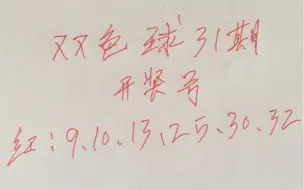 双色球31期
开奖号
红:9、10、13、25、30、32